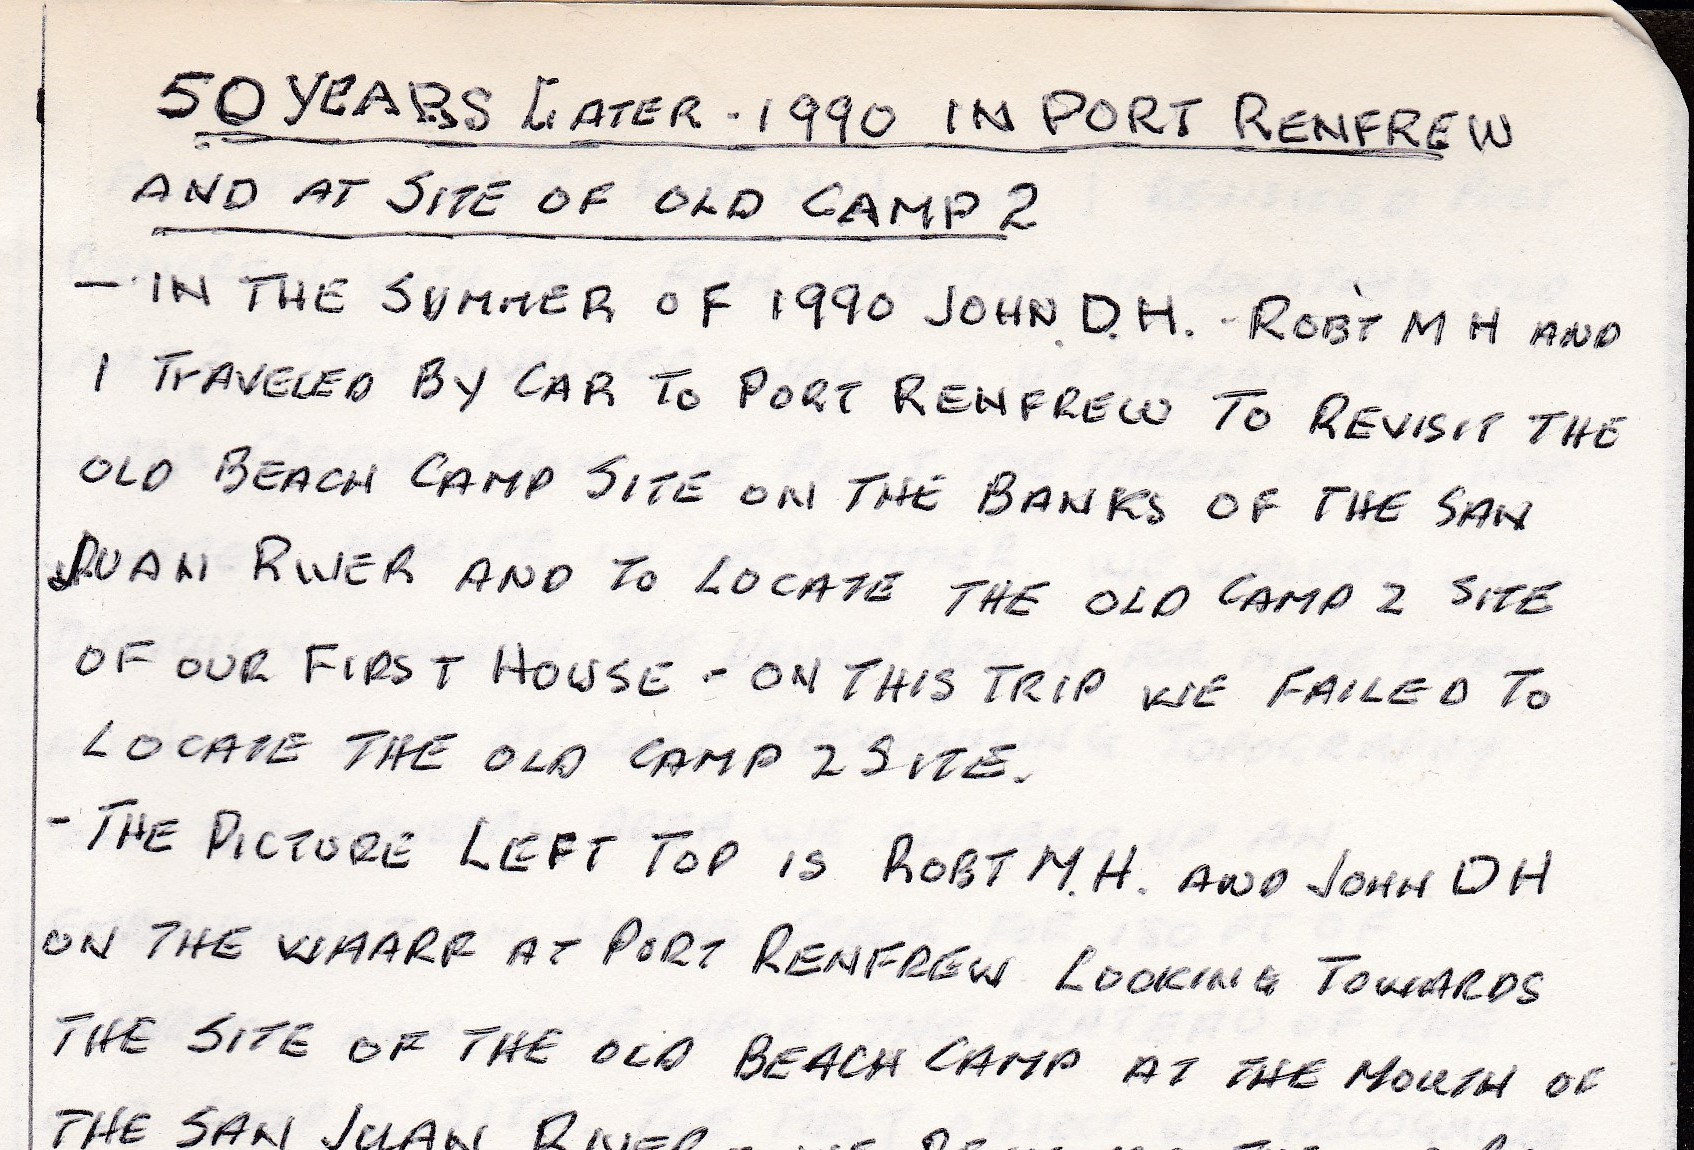 50 YEARS LATER - 1990 IN PORT RENFREW
AND AT SITE OF OLD CAMP 2
— IN THE SUMMER OF 1990 JOHN D.H. - ROBT. M H AND
I TRAVELED BY CAR TO PORT RENFREW TO REVISIT THE
OLD BEACH CAMP SITE ON THE BANKS OF THE SAN
JUAN RIVER AND TO LOCATE THE OLD CAMP 2 SITE
OF OUR FIRST HOUSE - ON THIS TRIP WE FAILED TO
LOCATE THE OLD CAMP 2 SITE.
- THE PICTURE LEFT TOP IS ROBT M.H. AND JOHN D H
ON THE WHARF AT PORT RENFREW LOOKING TOWARDS
THE SITE OF THE OLD BEACH CAMP AT THE MOUTH OF
THE SAN JUAN RIVER - WE